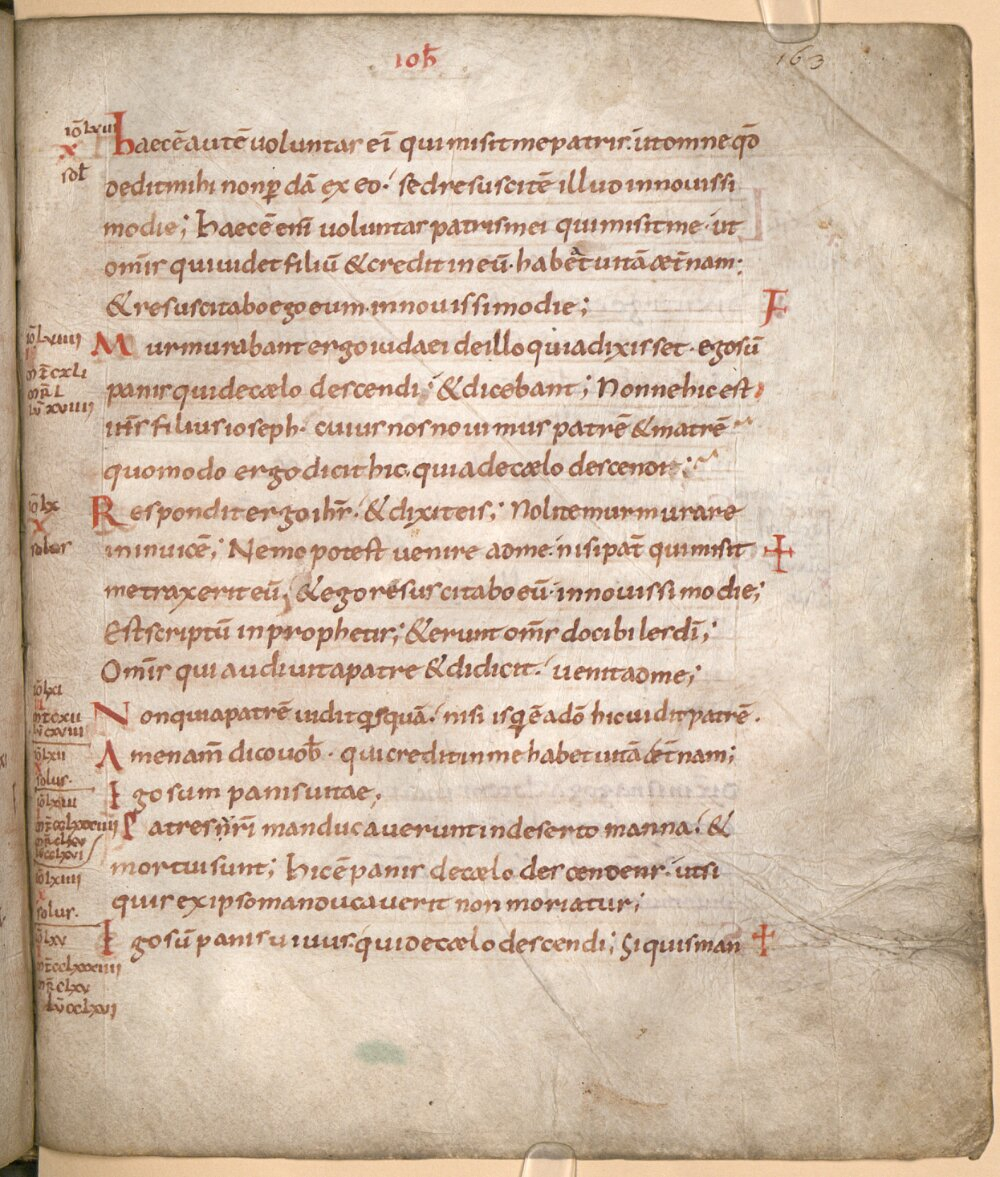 ioħ
163
haec ē autē voluntas ei' qui misit me patris. ut omne qd̄
dedit mihi non ꝑdā ex eo. sed resuscitē illud in novissi
mo die; haec ē enī voluntas patris mei qui misit me. ut
om̄s qui videt filiū & credit in eū. habeat vitā aet̄nam.
& resuscitabo ego eum in novissimo die;
F
Murmurabant ergo iudaei de illo quia dixisset. ego sū
panis qui de caelo descendi. & dicebant; Nonne hic est
ih̄s filius ioseph. cuius nos novimus patrē & matrē
quomodo ergo dicit hic. quia de caelo descendit;
Respondit ergo ih̄s. & dixit eis; Nolite murmurare
in invicē; Nemo potest venire ad me. nisi pat̄ qui misit
me traxerit eū; & ego resuscitabo eū in novissimo die;
Est scriptū in prophetis; & erunt om̄s docibiles dī;
Om̄is qui audivit a patre & didicit. venit ad me;
Non quia patrē vidit qisquā. nisi is qi ē a dō hic vidit patrē.
Amen am̄ dico vob̄. qui credit in me habet vitā aet̄nam;
Ego sum panis vitae;
Patres vr̄i manducaverunt in deserto manna. &
mortui sunt; hic ē panis de caelo descendens. ut si
quis ex ipso manducaverit non moriatur;
Ego sū panis vivus. qui de caelo descendi; Si quis man
iō lviii
x
sol
iō lx
x
solus
iō lxi
iō lxii
x
solus.
iō lxiii
iō lxiiii
x
solus.
iō lxv